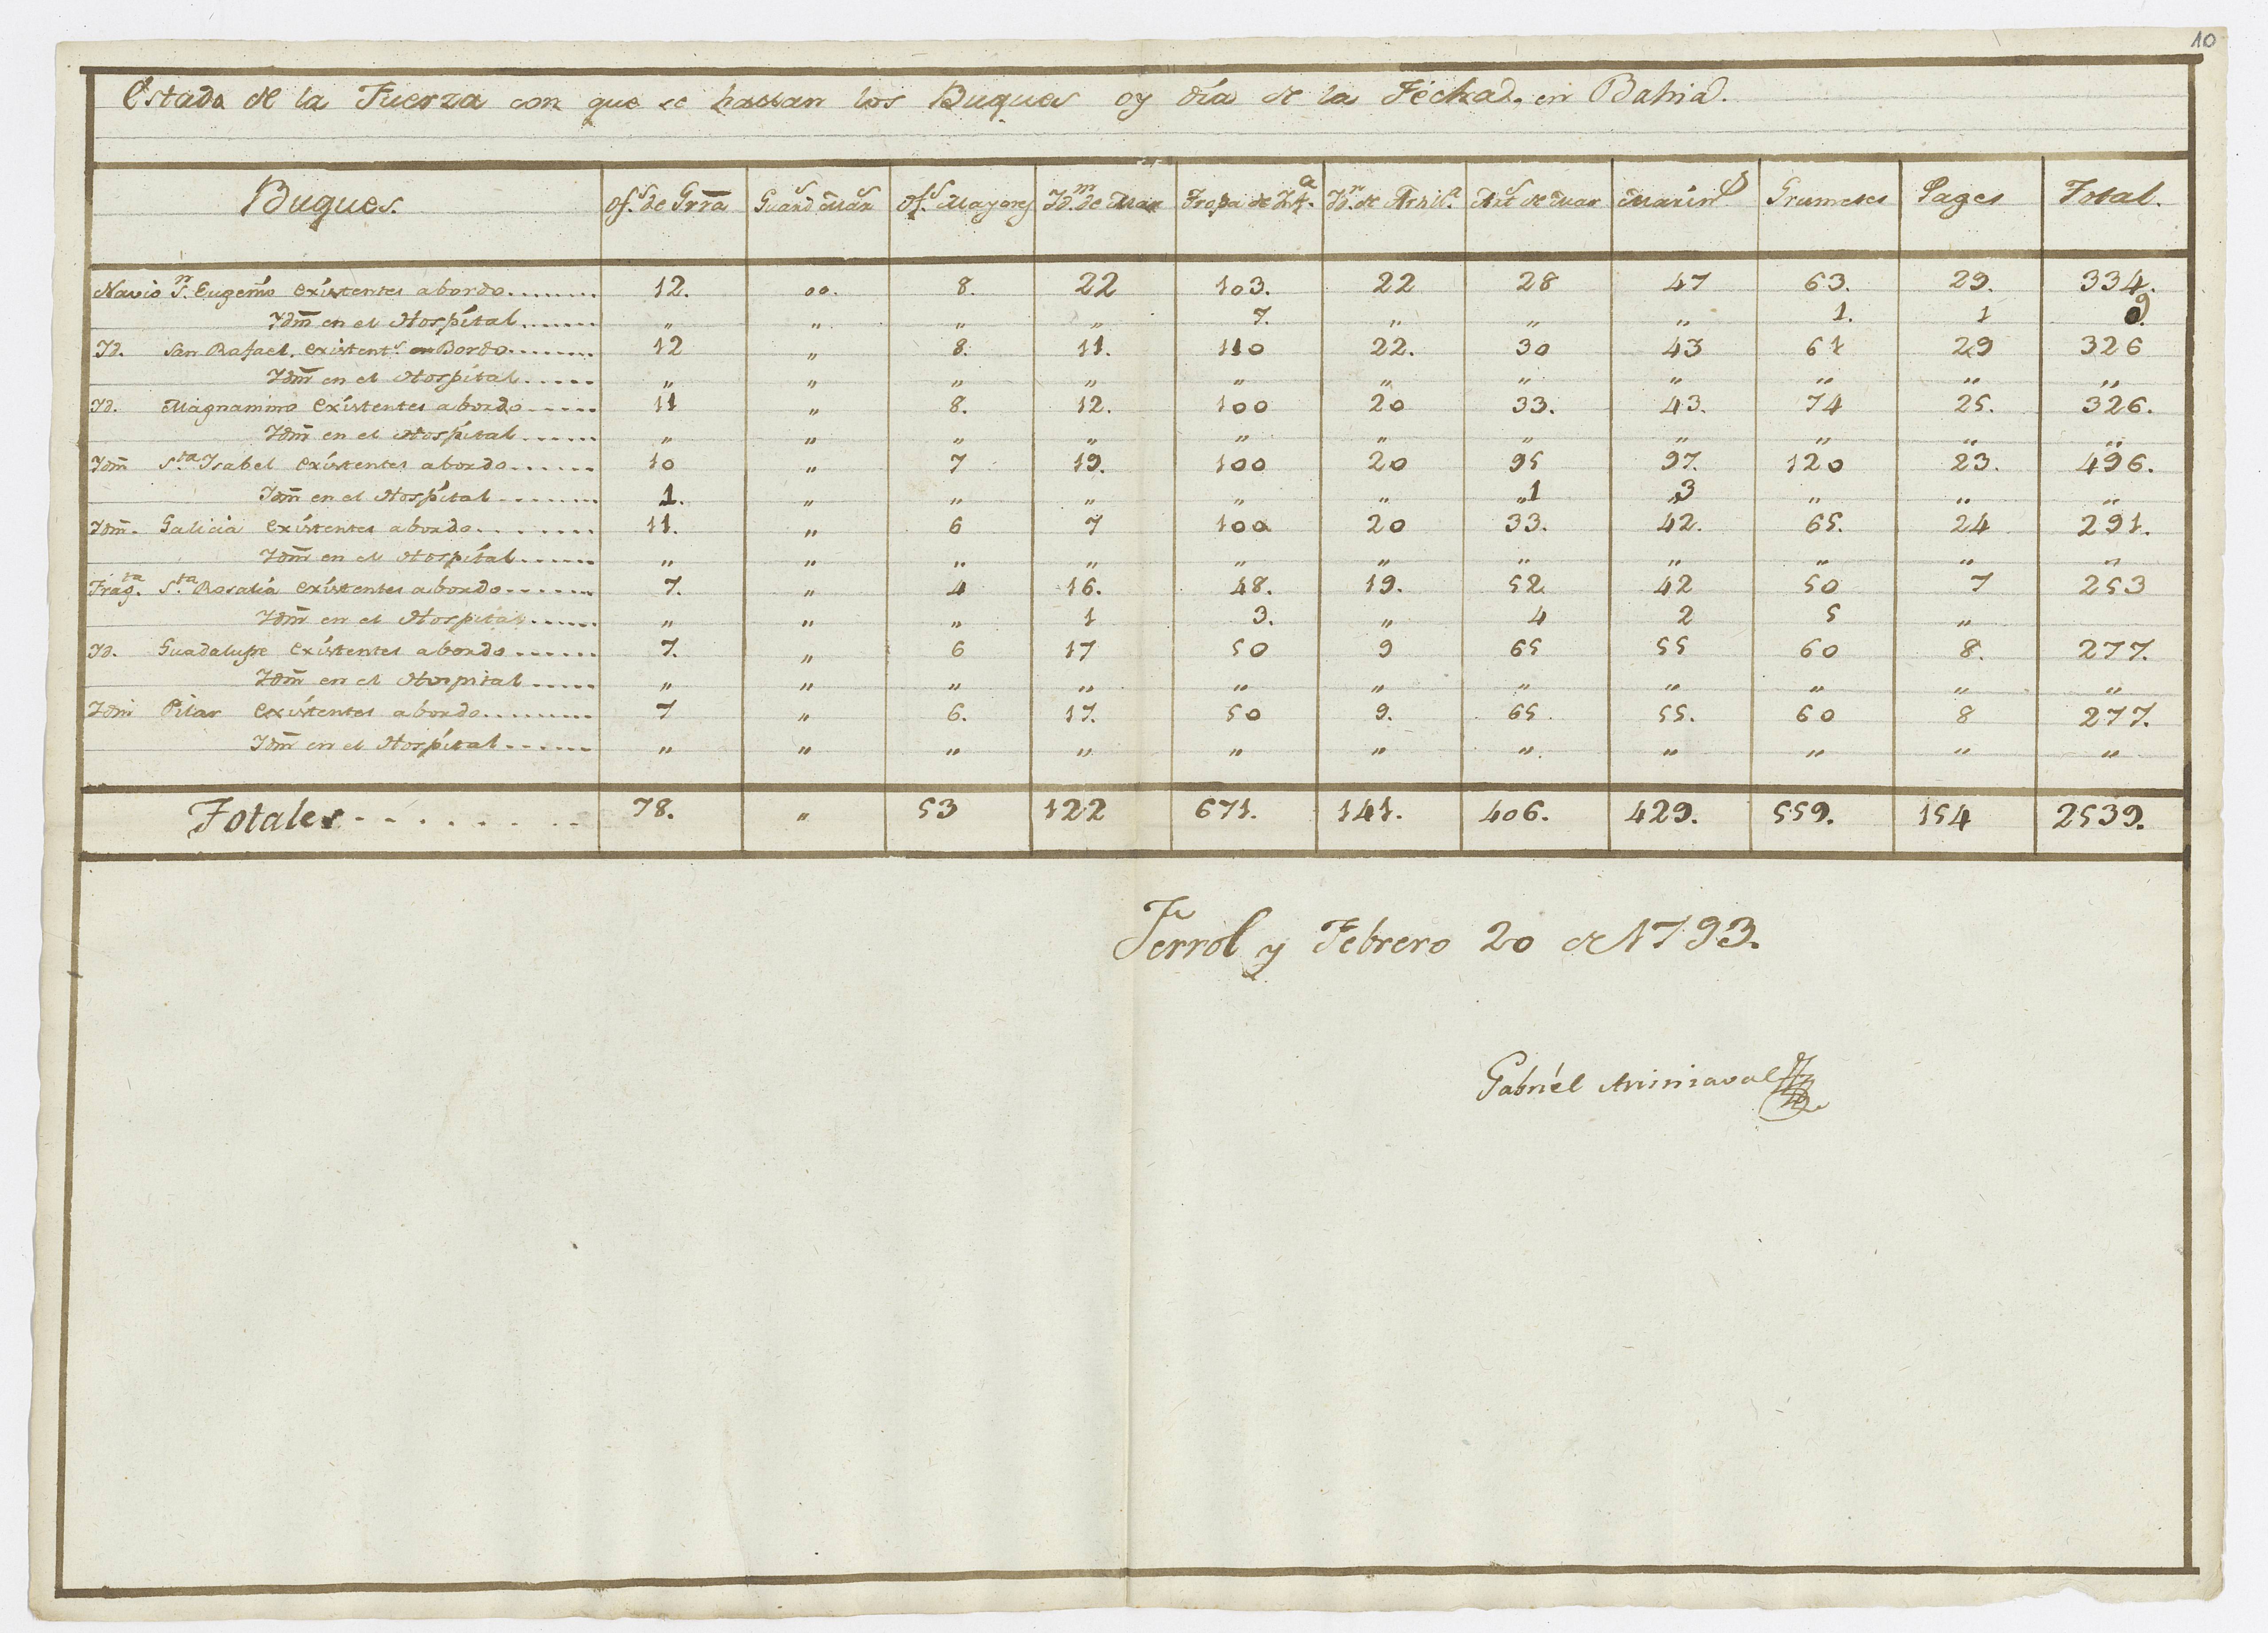 10
Estado de la Fuerza con que se hallan los Buques oy día de la Fecha, en Bahia.
Buques. Of.s de Grra Guard.s Mar.s Of.s Mayores Id.m de Mar Tropa de Inf.a Id.n de Artill.a Art.s de Mar Marin.s Grumetes Pages Total.
Navio S.n Eugenio existentes abordo....... 12. 00. 8. 22 103. 22 28 47 63. 29. 334.
Idm̄ en el Hospital...... " " " " 7. " " " 1. 1 9.
Id. San Rafael. existent.s a Bordo....... 12 " 8. 11. 110 22. 30 43 61 29 326
Idm̄ en el Hospital..... " " " " " " " " " " "
Id. Magnanimo existentes abordo..... 11 " 8. 12. 100 20 33. 43. 74 25. 326.
Idm̄ en el Hospital...... " " " " " " " " " " "
Idm̄ S.ta Isabel existentes abordo...... 10 " 7 19. 100 20 95 97. 120 23. 496.
Idm̄ en el Hospital....... 1. " " " " " 1 3 " " "
Idm̄. Galicia existentes abordo........ 11. " 6 7 100 20 33. 42. 65. 24 291.
Idm̄ en el Hospital...... " " " " " " " " " " "
Frag.ta S.ta Rosalia existentes abordo...... 7. " 4 16. 48. 19. 52 42 50 7 253
Idm̄ en el Hospital..... " " " 1 3. " 4 2 5 "
Id. Guadalupe existentes abordo...... 7. " 6 17 50 9 65 55 60 8. 277.
Idm̄ en el Hospital..... " " " " " " " " " " "
Idm̄ Pilar existentes abordo........ 7 " 6. 17. 50 9. 65. 55. 60 8 277.
Idm̄ en el Hospital...... " " " " " " " " " " "
Totales......... 78. " 53 122 671. 141. 406. 429. 559. 154 2539.
Ferrol y Febrero 20 de 1793.
Gabriel